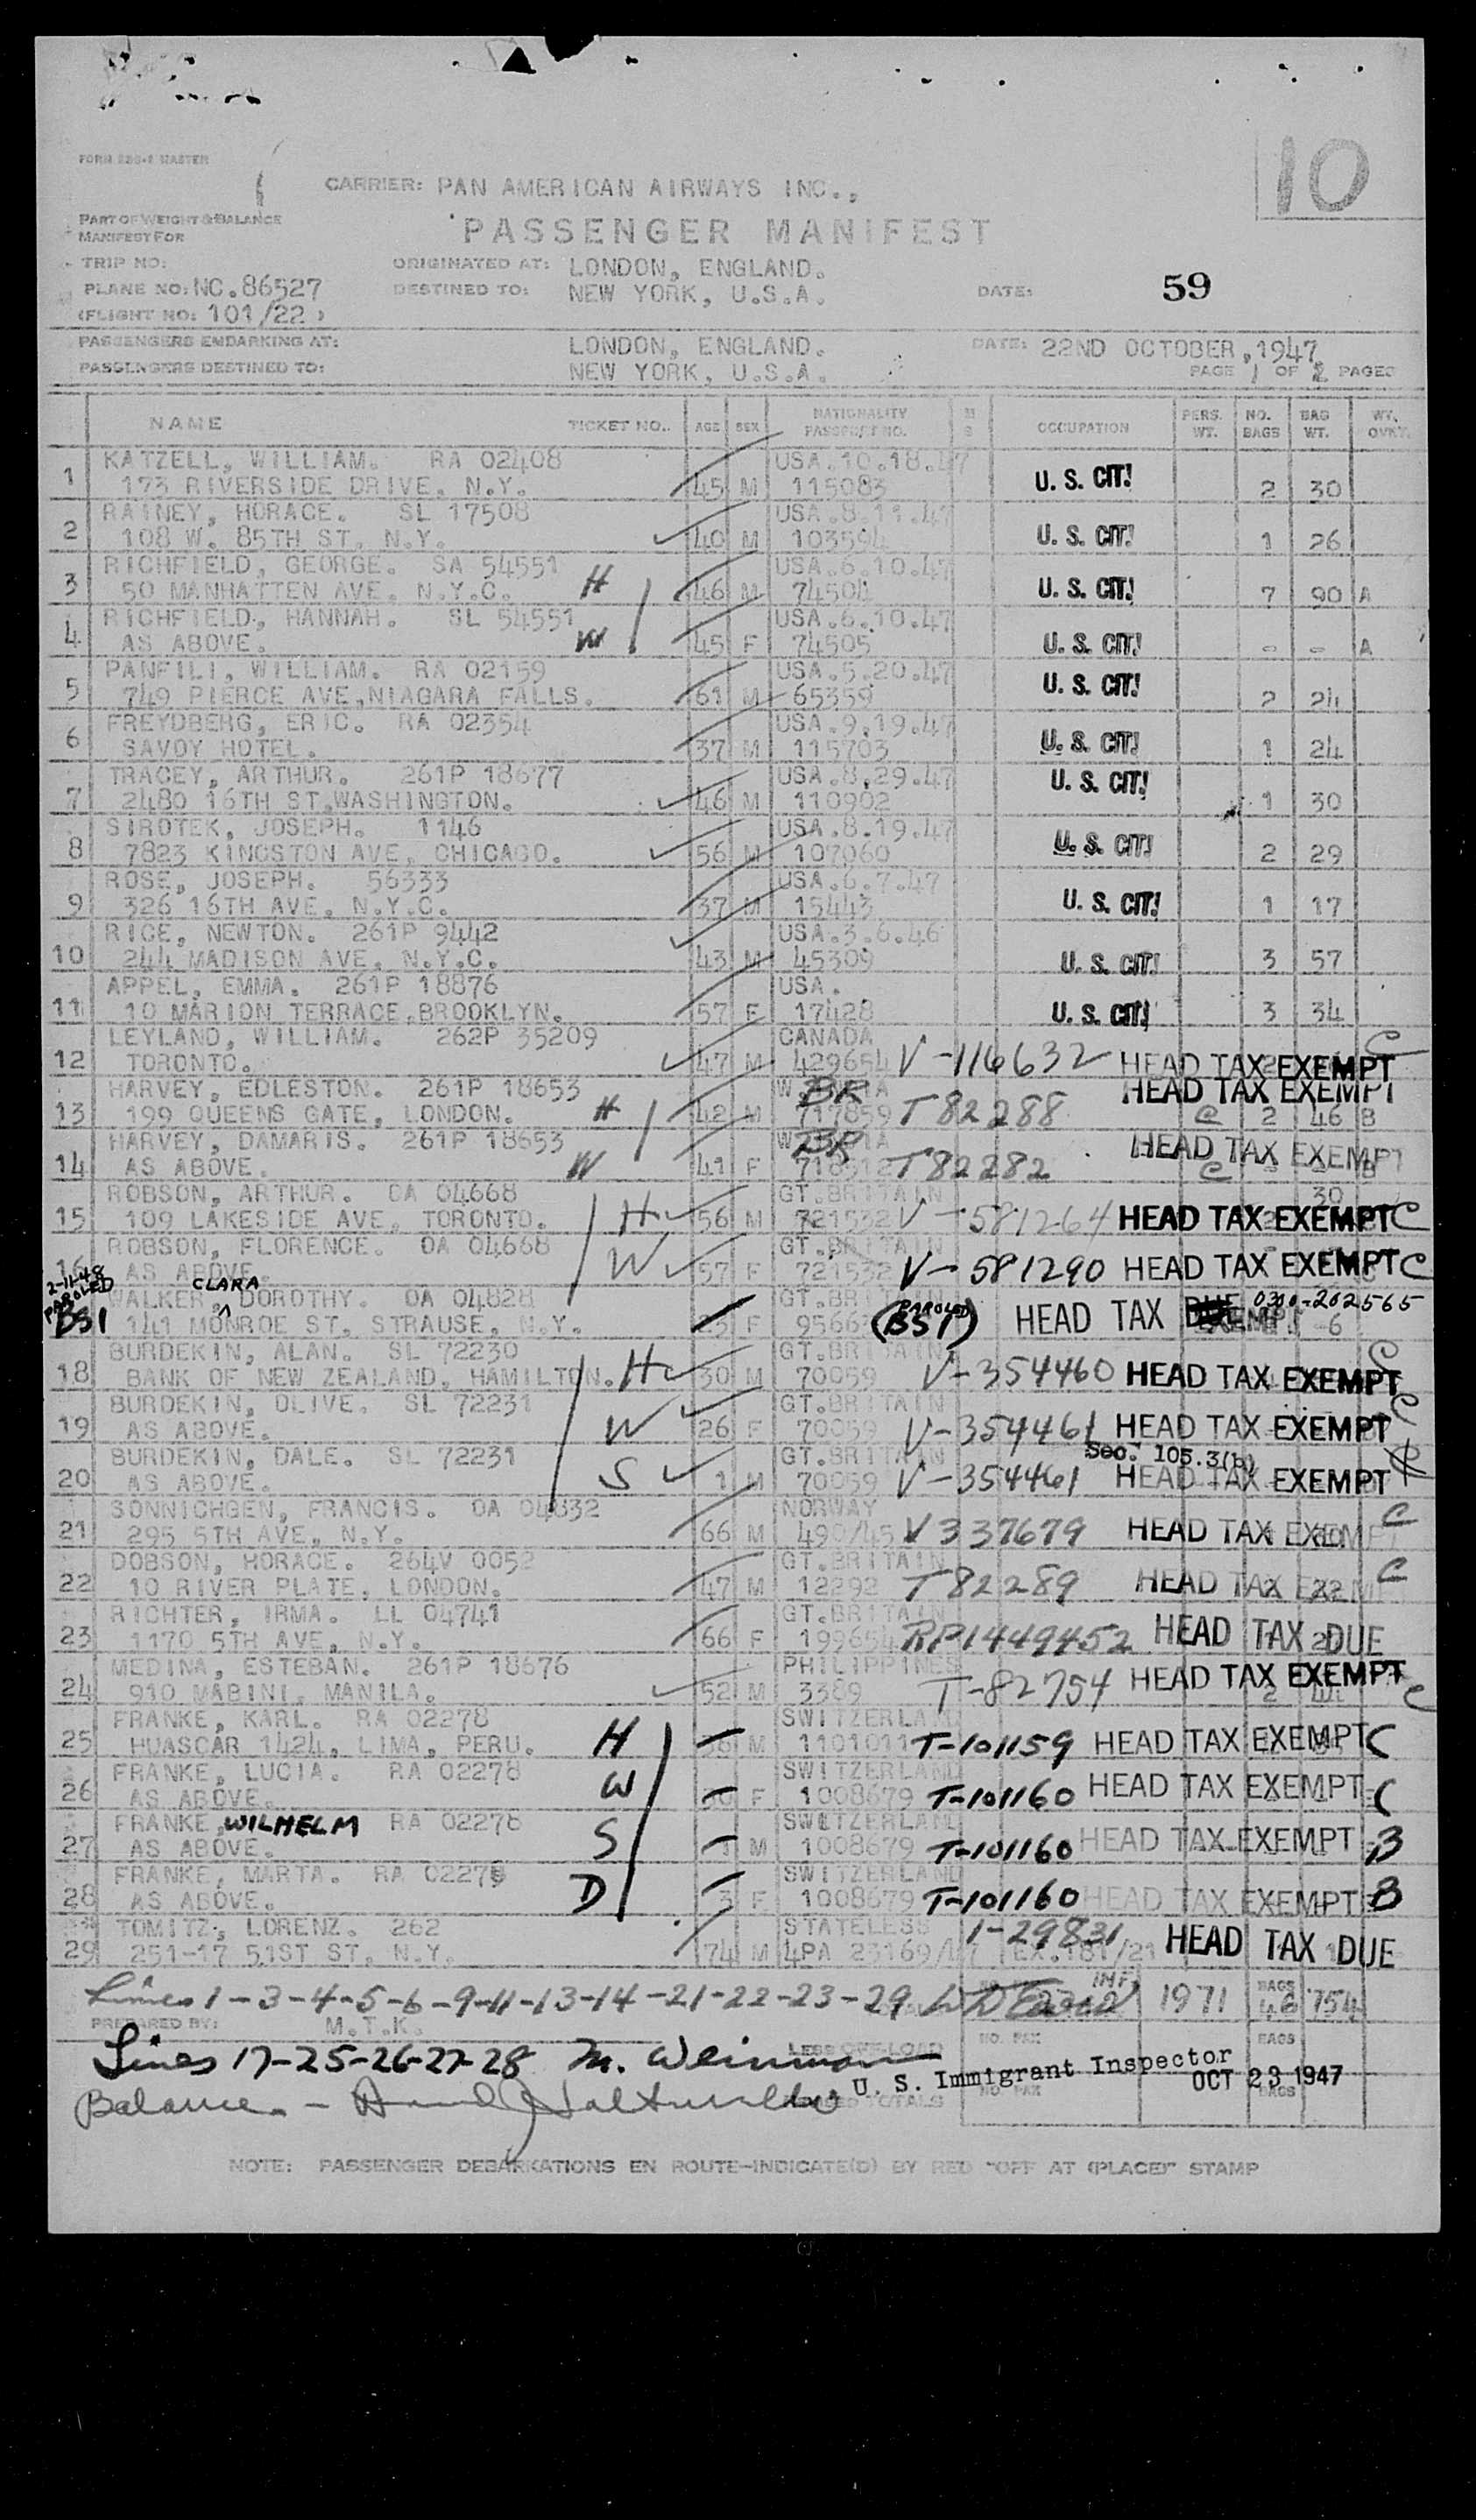 10
FORM MASTER
CARRIER: PAN AMERICAN AIRWAYS INC.,
PART OF WEIGHT & BALANCE
MANIFEST FOR
PASSENGER MANIFEST
TRIP NO:
ORIGINATED AT: LONDON, ENGLAND.
PLANE NO: NC.86527
DESTINED TO: NEW YORK, U.S.A.
DATE: 59
(FLIGHT NO: 101/22)
PASSENGERS EMBARKING AT: LONDON, ENGLAND. DATE: 22ND OCTOBER, 1947
PASSENGERS DESTINED TO: NEW YORK, U.S.A. PAGE 1 OF 2 PAGES
NAME TICKET NO. AGE SEX NATIONALITY PASSPORT NO. M S OCCUPATION PERS. WT. NO. BAGS BAG WT. WT. OVKT.
KATZELL, WILLIAM. RA 02408 USA.10.18.47
1 173 RIVERSIDE DRIVE, N.Y. 45 M 115083 U. S. CIT! 2 30
RAINEY, HORACE. SL 17508 USA.8.11.47
2 108 W. 85TH ST. N.Y. 40 M 103594 U. S. CIT! 1 26
RICHFIELD, GEORGE. SA 54551 USA.6.10.47
3 50 MANHATTEN AVE. N.Y.C. H 46 M 74504 U. S. CIT! 7 90 A
RICHFIELD, HANNAH. SL 54551 USA.6.10.47
4 AS ABOVE. W 45 F 74505 U. S. CIT! - - A
PANFILI, WILLIAM. RA 02159 USA.5.20.47
5 749 PIERCE AVE,NIAGARA FALLS. 61 M 65359 U. S. CIT! 2 24
FREYDBERG, ERIC. RA 02354 USA.9.19.47
6 SAVOY HOTEL. 37 M 115703 U. S. CIT! 1 24
TRACEY, ARTHUR. 261P 18677 USA.8.29.47
7 2480 16TH ST,WASHINGTON. 46 M 110902 U. S. CIT! 1 30
SIROTEK, JOSEPH. 1146 USA.8.19.47
8 7823 KINGSTON AVE, CHICAGO. 56 M 107060 U. S. CIT! 2 29
ROSE, JOSEPH. 56333 USA.6.7.47
9 326 16TH AVE. N.Y.C. 37 M 15443 U. S. CIT! 1 17
RICE, NEWTON. 261P 9442 USA.3.6.46
10 244 MADISON AVE, N.Y.C. 43 M 45309 U. S. CIT! 3 57
APPEL, EMMA. 261P 18876 USA.
11 10 MARION TERRACE,BROOKLYN. 57 F 17428 U. S. CIT! 3 34
LEYLAND, WILLIAM. 262P 35209 CANADA
12 TORONTO. 47 M 429654 V-116632 HEAD TAX EXEMPT C
HARVEY, EDLESTON. 261P 18653 BR HEAD TAX EXEMPT
13 199 QUEENS GATE, LONDON. H 42 M 717859 T82288 C 2 46 B
HARVEY, DAMARIS. 261P 18653 BR HEAD TAX EXEMPT
14 AS ABOVE. W 41 F T82282 C B
ROBSON, ARTHUR. OA 04668 GT.BRITAIN 30
15 109 LAKESIDE AVE, TORONTO. H 56 M 721532 V-581264 HEAD TAX EXEMPT C
ROBSON, FLORENCE. OA 04668 GT.BRITAIN
16 AS ABOVE. W 57 F 721532 V-581290 HEAD TAX EXEMPT C
2-11-48 PAROLED CLARA
WALKER, DOROTHY. OA 04828 GT.BRITAIN 0300-262565
BSI 141 MONROE ST, STRAUSE, N.Y. F (PAROLED BSI) HEAD TAX DUE 6
BURDEKIN, ALAN. SL 72230 GT.BRITAIN C
18 BANK OF NEW ZEALAND, HAMILTON. H 30 M 70059 V-354460 HEAD TAX EXEMPT
BURDEKIN, OLIVE. SL 72231 GT.BRITAIN C
19 AS ABOVE. W 26 F 70059 V-354461 HEAD TAX EXEMPT
BURDEKIN, DALE. SL 72231 GT.BRITAIN Sec. 105.3(b)
20 AS ABOVE. S 1 M 70059 V-354461 HEAD TAX EXEMPT
SONNICHGEN, FRANCIS. OA 04832 NORWAY C
21 295 5TH AVE, N.Y. 66 M 490/45 V337679 HEAD TAX EXEMPT
DOBSON, HORACE. 264V 0052 GT.BRITAIN C
22 10 RIVER PLATE, LONDON. 47 M 12292 T82289 HEAD TAX EXEMPT
RICHTER, IRMA. LL 04741 GT.BRITAIN
23 1170 5TH AVE, N.Y. 66 F 199654 RP1449452 HEAD TAX DUE
MEDINA, ESTEBAN. 261P 18676 PHILIPPINES
24 910 MABINI, MANILA. 52 M 3389 T-82754 HEAD TAX EXEMPT C
FRANKE, KARL. RA 02278 SWITZERLAND
25 HUASCAR 1424, LIMA, PERU. H M 1101011 T-101159 HEAD TAX EXEMPT C
FRANKE, LUCIA. RA 02278 SWITZERLAND
26 AS ABOVE. W 30 F 1008679 T-101160 HEAD TAX EXEMPT C
FRANKE, WILHELM RA 02278 SWITZERLAND
27 AS ABOVE. S M 1008679 T-101160 HEAD TAX EXEMPT B
FRANKE, MARTA. RA 02278 SWITZERLAND
28 AS ABOVE. D 3 F 1008679 T-101160 HEAD TAX EXEMPT B
TOMITZ, LORENZ. 262 STATELESS 1-29831
29 251-17 51ST ST. N.Y. 74 M 4PA 23169/47 EX.181/21 HEAD TAX DUE
Lines 1-3-4-5-6-9-11-13-14-21-22-23-29 INF. 1971 BAGS 46 754
PREPARED BY: M.T.K.
LESS OFF-LOAD NO. PAX BAGS
Lines 17-25-26-27-28 M. Weinman
U. S. Immigrant Inspector
OCT 23 1947
Balance -
TOTALS NO. PAX BAGS
NOTE: PASSENGER DEBARKATIONS EN ROUTE-INDICATE(D) BY RED "OFF AT (PLACE)" STAMP